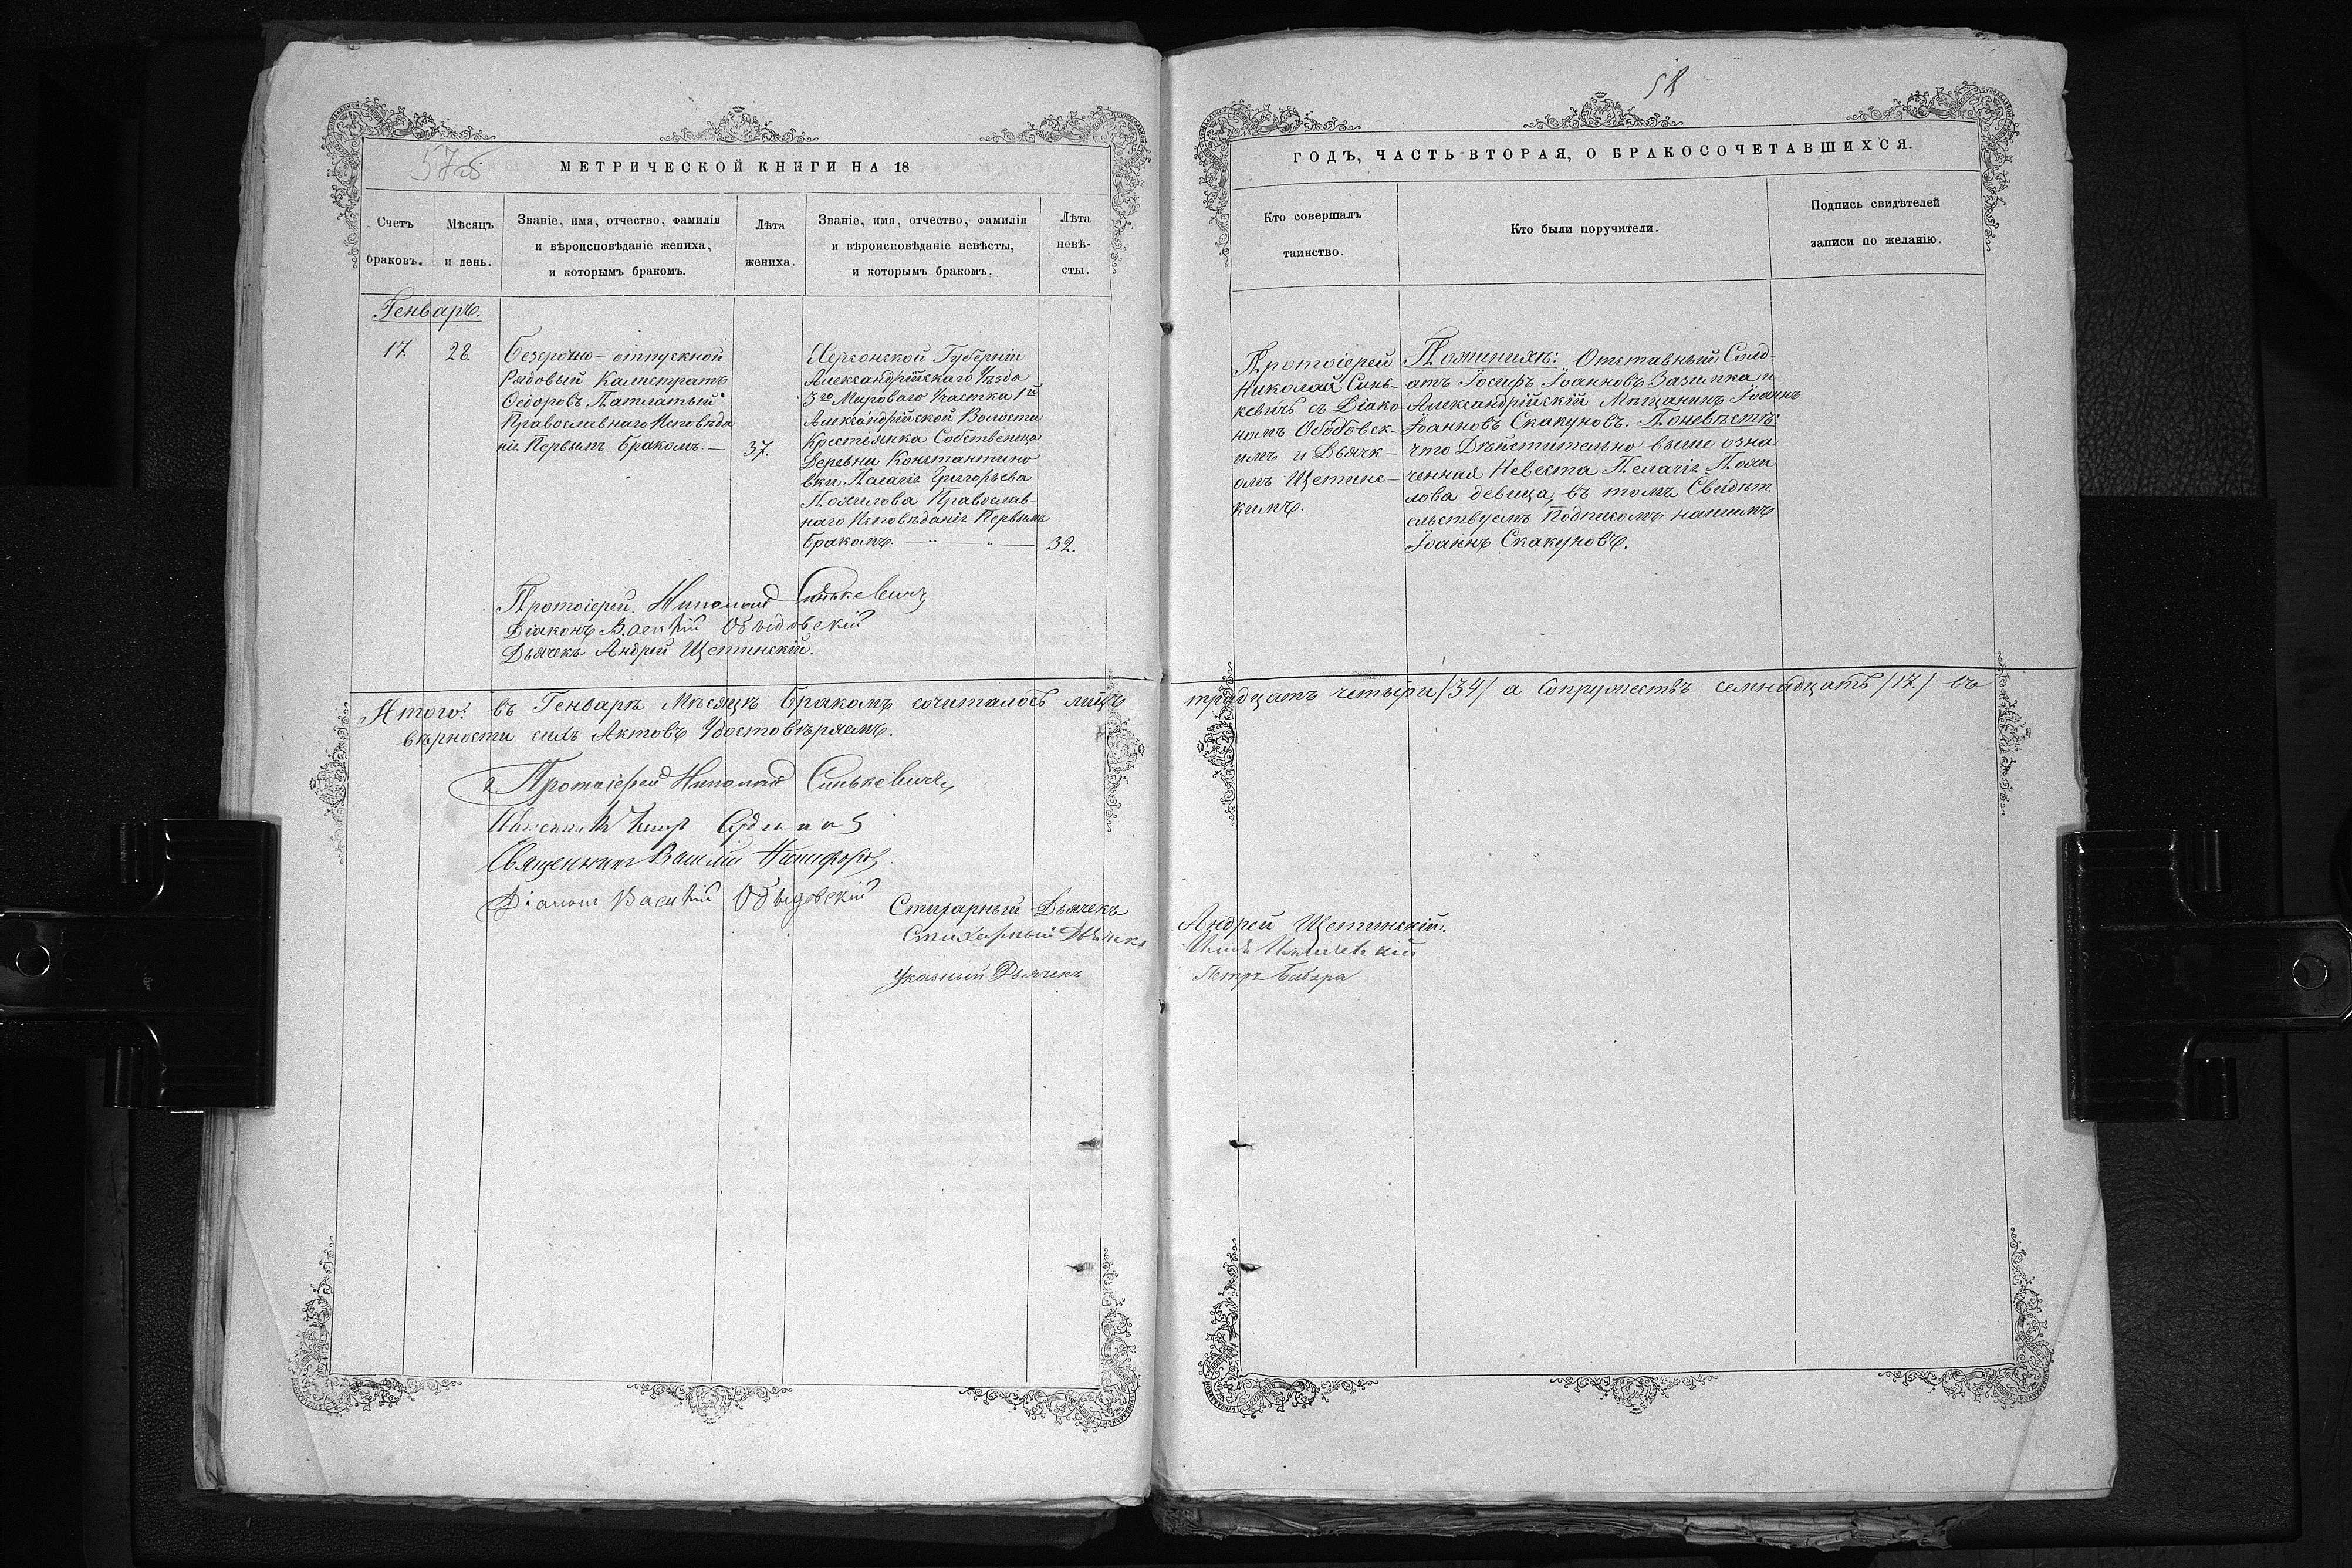 57об
МЕТРИЧЕСКОЙ КНИГИ НА 18
Счетъ браковъ.
Мѣсяцъ и день.
Званіе, имя, отчество, фамилія
и вѣроисповѣданіе жениха,
и которымъ бракомъ.
Лѣта жениха.
Званіе, имя, отчество, фамилія
и вѣроисповѣданіе невѣсты,
и которымъ бракомъ.
Лѣта невѣ-
сты.
Генваръ.
17.
28.
Безсрочно-отпускной
Рядовый Калистратъ
Ѳедоровъ
Православнаго Исповѣда
нія Первымъ Бракомъ. —
37.
Херсонской Губерніи
Александрійскаго Уѣзда
3го Мироваго Участка 1й
Александрійской Волости
Крестьянка Собственица
Деревни Константино
вки Пелагія Григорьева
Пожилова Православ-
наго Исповѣданія Первымъ
Бракомъ. — " — " —
32.
Протоіерей Николай Синькевичъ
Діаконъ Василій
Дьячекъ Андрей Щетинскій.
Итого: въ Генварѣ Мѣсяцѣ Бракомъ сочиталось лицъ
вѣрности сихъ Актовъ Удостовѣряемъ.
Протоіерей Николай Синькевичъ
Священникъ Василій Никифоровъ
Діаконъ Василій
Стихарный Дьячекъ
Стихарный Дьячекъ
Указный Дьячекъ
58
ГОДЪ, ЧАСТЬ ВТОРАЯ, О БРАКОСОЧЕТАВШИХСЯ.
Кто совершалъ
таинство.
Кто были поручители.
Подпись свидѣтелей
записи по желанію.
Протоіерей
Николай Синь-
кевичъ съ Діако-
номъ
имъ и Дьячк-
омъ Щетинс-
кимъ.
По женихѣ: Отставный Солд-
атъ Іосифъ Іоанновъ Зазимка и
Александрійскій Мѣщанинъ Іоаннъ
Іоанновъ Скакуновъ. По невѣстѣ:
что Дѣйстительно выше озна
ченная Невеста Пелагія Пожи
лова девица, въ томъ Свидѣт.
ельствуемъ Подписомъ нашимъ
Іоаннъ Скакуновъ.
тридцать четыри /34/ а Сопружествъ семнадцать /17./ въ
Андрей Щетинскій.
Петръ